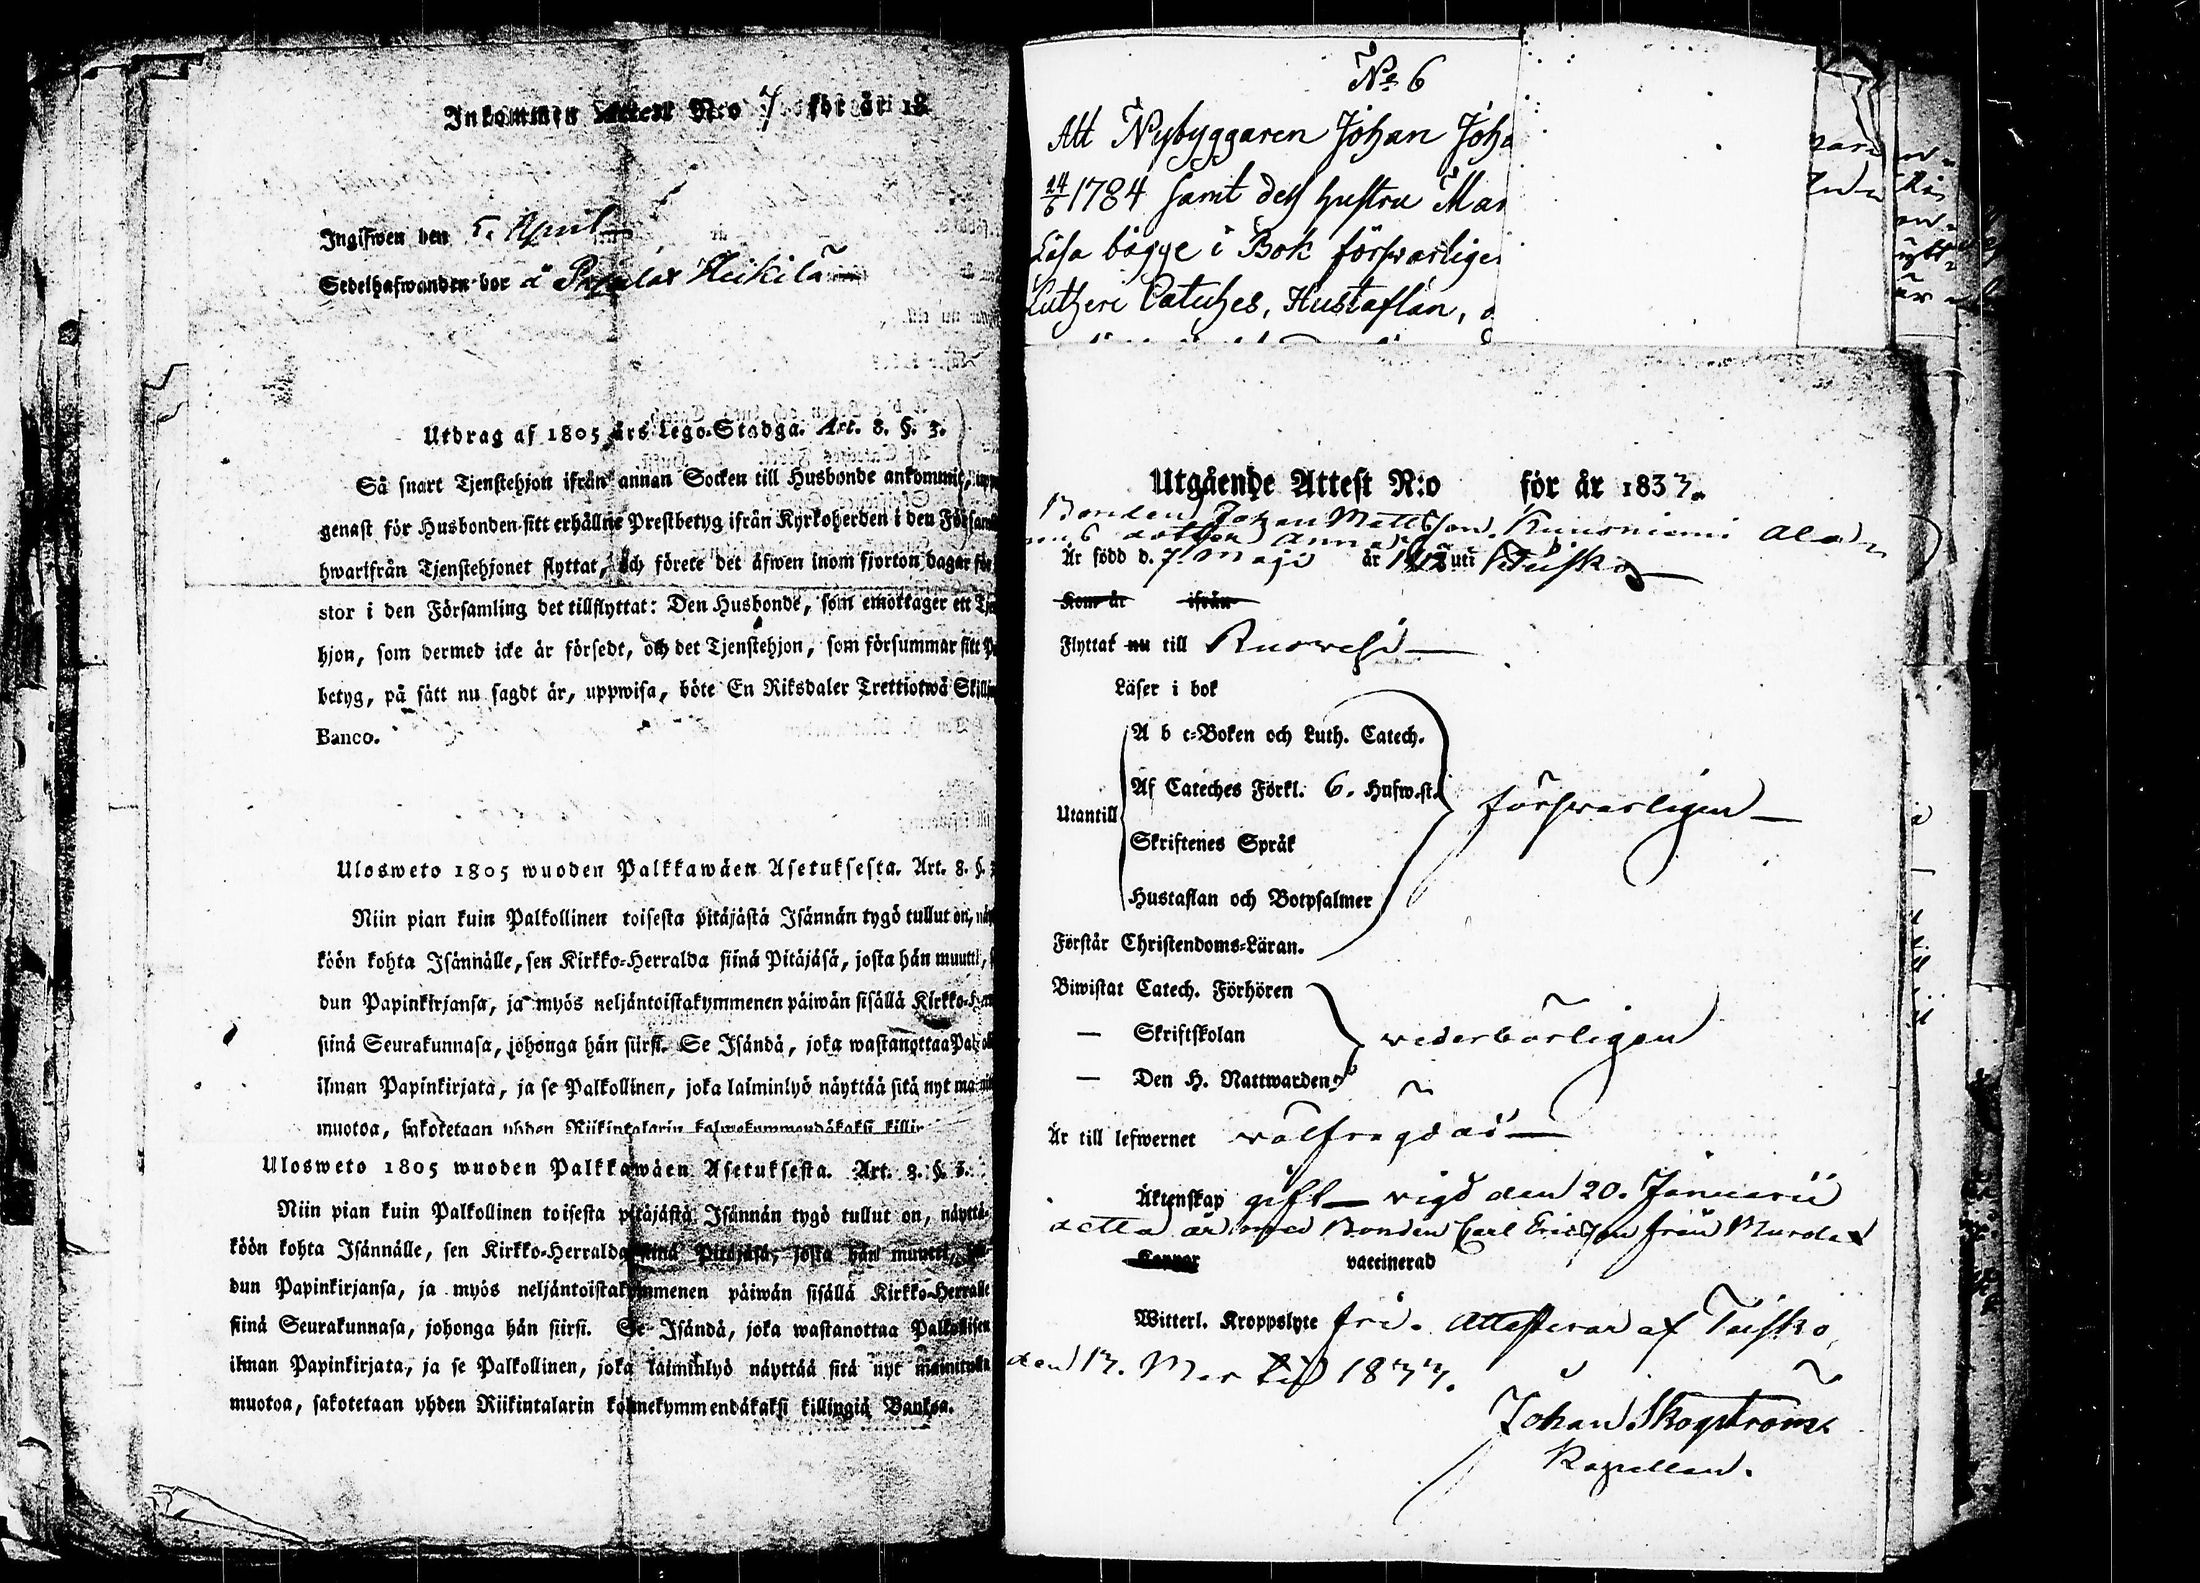 Inkommen Attest N:o 7 för år 18
Ingifwen den 5. April
Sedelhafwanden bor å Heikilä
Utdrag af 1805 års Lego-Stadga. Art. 8. §. 3.
Så snart Tjenstehjon ifrån annan Socken till Husbonde ankommit, upp
genast för Husbonden sitt erhållne Prestbetyg ifrån Kyrkoherden i den Församl
hwarifrån Tjenstehjonet flyttat, och förete det äfwen inom fjorton dagar för
stor i den Församling det tillflyttat: Den Husbonde, som emottager ett Tje
hjon, som dermed icke är försedt, och det Tjenstehjon, som försummar sitt P
betyg, på sätt nu sagdt är, uppwisa, böte En Riksdaler Trettiotwå Skillin
Banco.
Ulosweto 1805 wuoden Palkkawäen Asetuksesta. Art. 8. §. 3
Niin pian kuin Palkollinen toisesta pitäjästä Isännän tygö tullut on, näy
köön kohta Isännälle, sen Kirkko-Herralda siinä Pitäjäsä, josta hän muutti, s
dun Papinkirjansa, ja myös neljäntoistakymmenen päiwän sisällä Kirkko-Herr
siinä Seurakunnasa, johonga hän siirsi. Se Isändä, joka wastanottaa Palkoll
ilman Papinkirjata, ja se Palkollinen, joka laiminlyö näyttää sitä nyt mainit
muotoa, sakotetaan yhden Riikintalarin kolmekymmendäkaksi killin
Ulosweto 1805 wuoden Palkkawäen Asetuksesta. Art. 8. §. 3.
Niin pian kuin Palkollinen toisesta pitäjästä Isännän tygö tullut on, näyttä-
köön kohta Isännälle, sen Kirkko-Herralda siinä Pitäjäsä, josta hän muutti,
dun Papinkirjansa, ja myös neljäntoistakymmenen päiwän sisällä Kirkko-Herralle
siinä Seurakunnasa, johonga hän siirsi. Se Isändä, joka wastanottaa Palkollisen
ilman Papinkirjata, ja se Palkollinen, joka laiminlyö näyttää sitä nyt mainitulla
muotoa, sakotetaan yhden Riikintalarin kolmekymmendäkaksi killingiä Bankoa.
No 6
Att Nybyggaren Johan Joha
24/6 1784 samt dess hustru Mar
Läsa bägge i Bok förswarligen
Lutheri Cateches, Hustaflan, o
Utgående Attest N:o för år 1833.
Bonden Johan Mattsson Kuusniemi
dotter Anna
Är född d. 7 Maji år 1812 uti Teisko
Kom år ifrån
Flyttat nu till Ruowesi
Läser i bok
A b c-Boken och Luth. Catech.
Af Cateches Förkl. 6. Hufw.st.
Utantill förswarligen
Skriftenes Språk
Hustaflan och Botpsalmer
Förstår Christendoms-Läran.
Biwistat Catech. Förhören
— Skriftskolan wederbörligen
— Den H. Nattwarden
Är till lefwernet wälfrägdad
Äktenskap gift wigd den 20. Januarii
detta år med Bonden Carl Ericsson från Murole
Koppor vaccinerad
Witterl. Kroppslyte fri. Attesterar af Teisko,
den 17. Martii 1833.
Johan Skogström
Kapellan.